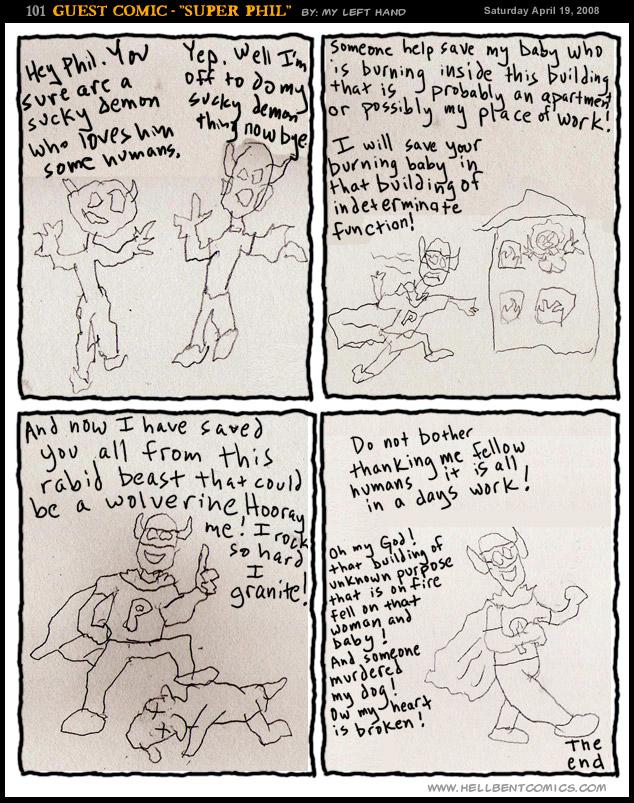 101 GUEST COMIC - "SUPER PHIL" BY: MY LEFT HAND
Saturday April 19, 2008
Hey Phil. You
sure are a
sucky demon
who loves him
some humans.
Yep. Well I'm
off to do my
sucky demon
thing now bye.
Someone help save my baby who
is burning inside this building
that is probably an apartment
or possibly my place of work!
I will save your
burning baby in
that building of
indeterminate
function!
P
And now I have saved
you all from this
rabid beast that could
be a wolverine Hooray
me! I rock
so hard
I
granite!
P
Do not bother
thanking me fellow
humans it is all
in a days work!
Oh my God!
that building of
unknown purpose
that is on fire
fell on that
woman and
baby!
And someone
murdered
my dog!
Ow my heart
is broken!
P
The
end
WWW.HELLBENTCOMICS.COM